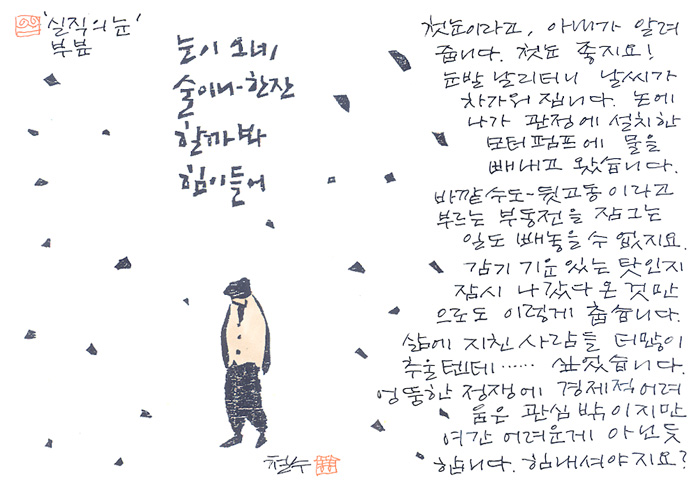 '실직의 눈'
부분
눈이 오네
술이나-한잔
할까봐
힘이들어
첫눈이라고, 아내가 알려
줍니다. 첫눈 좋지요!
눈발 날리더니 날씨가
차가워 집니다. 논에
나가 관정에 설치한
모터펌프에 물을
빼내고 왔습니다.
바깥수도-뒷고동이라고
부르는 부동전을 잠그는
일도 빼놓을 수 없지요.
감기 기운 있는 탓인지
잠시 나갔다 온 것만
으로도 이렇게 춥습니다.
삶에 지친 사람들 더많이
추울텐데…… 싶었습니다.
엉뚱한 정쟁에 경제적어려
움은 관심 밖이지만
여간 어려운게 아닌듯
합니다. 힘내셔야지요?
철수